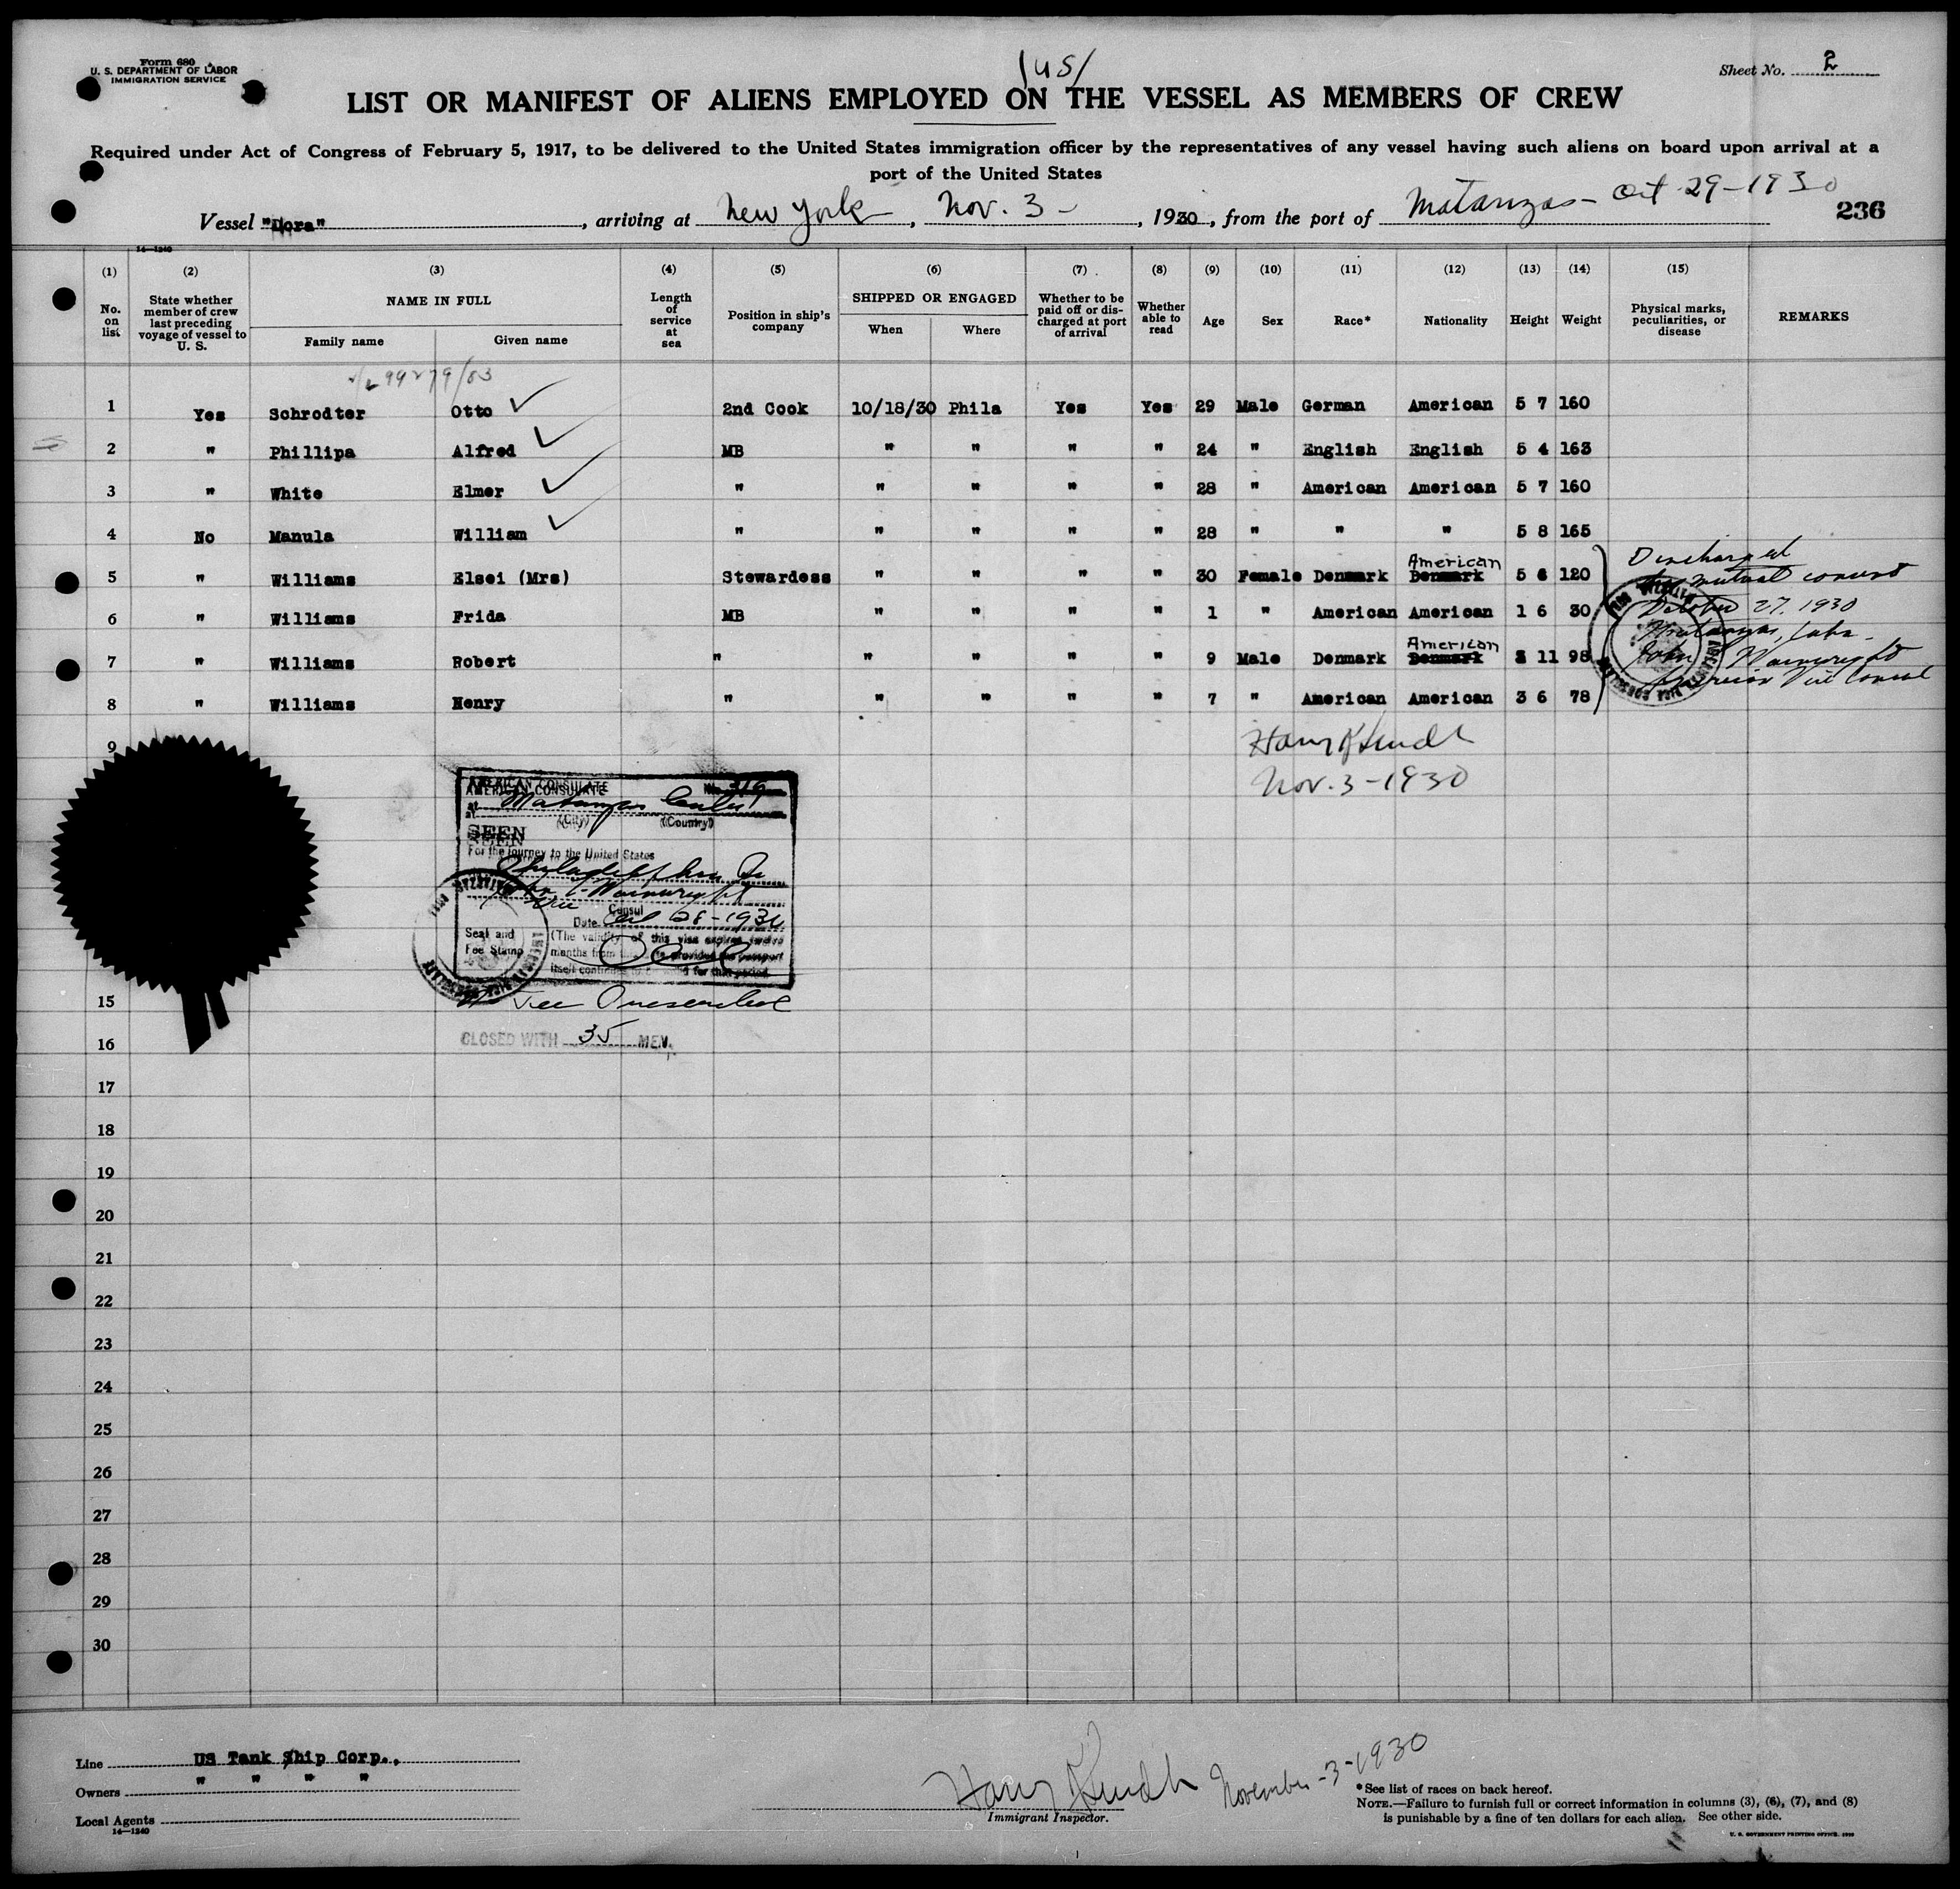 Form 680
U. S. DEPARTMENT OF LABOR
IMMIGRATION SERVICE
Sheet No. 2
LIST OR MANIFEST OF ALIENS EMPLOYED ON THE VESSEL AS MEMBERS OF CREW
Required under Act of Congress of February 5, 1917, to be delivered to the United States immigration officer by the representatives of any vessel having such aliens on board upon arrival at a
port of the United States
Vessel "Dora", arriving at New York, Nov. 3 -, 1930, from the port of Matanzas - Oct 29-1930
236
14—1240
(1) (2) (3) (4) (5) (6) (7) (8) (9) (10) (11) (12) (13) (14) (15)
No. on list
State whether member of crew last preceding voyage of vessel to U. S.
NAME IN FULL
Family name
Given name
Length of service at sea
Position in ship's company
SHIPPED OR ENGAGED
When
Where
Whether to be paid off or discharged at port of arrival
Whether able to read
Age
Sex
Race*
Nationality
Height
Weight
Physical marks, peculiarities, or disease
REMARKS
1 Yes Schrodter Otto 2nd Cook 10/18/30 Phila Yes Yes 29 Male German American 5 7 160
2 " Phillipa Alfred MB " " " " 24 " English English 5 4 163
3 " White Elmer " " " " " 28 " American American 5 7 160
4 No Manula William " " " " " 28 " " " 5 8 165
American
5 " Williams Elsei (Mrs) Stewardess " " " " 30 Female Denmark Denmark 5 6 120
6 " Williams Frida MB " " " " 1 " American American 1 6 30
American
7 " Williams Robert " " " " " 9 Male Denmark Denmark 11 98
8 " Williams Henry " " " " " 7 " American American 3 6 78
Discharged
by mutual consent
October 27, 1930
Matanzas, Cuba.
John Wainwright
American Vice Consul
Nov. 3-1930
9
AMERICAN CONSULATE
at Matanzas Cuba
(City) (Country)
SEEN
For the journey to the United States
Philadelphia Pa
Wainwright
Vice Consul
Date Oct 28-1930
Seal and
Fee Stamp
(The validity of this visa expires twelve
months from this date provided the passport
itself continues to be valid for that period.
No Fee Prescribed
CLOSED WITH 35 MEN.
15
16
17
18
19
20
21
22
23
24
25
26
27
28
29
30
Line US Tank Ship Corp.,
Owners " " " "
Local Agents
14—1240
November-3-1930
Immigrant Inspector.
*See list of races on back hereof.
NOTE.—Failure to furnish full or correct information in columns (3), (6), (7), and (8)
is punishable by a fine of ten dollars for each alien. See other side.
U. S. GOVERNMENT PRINTING OFFICE